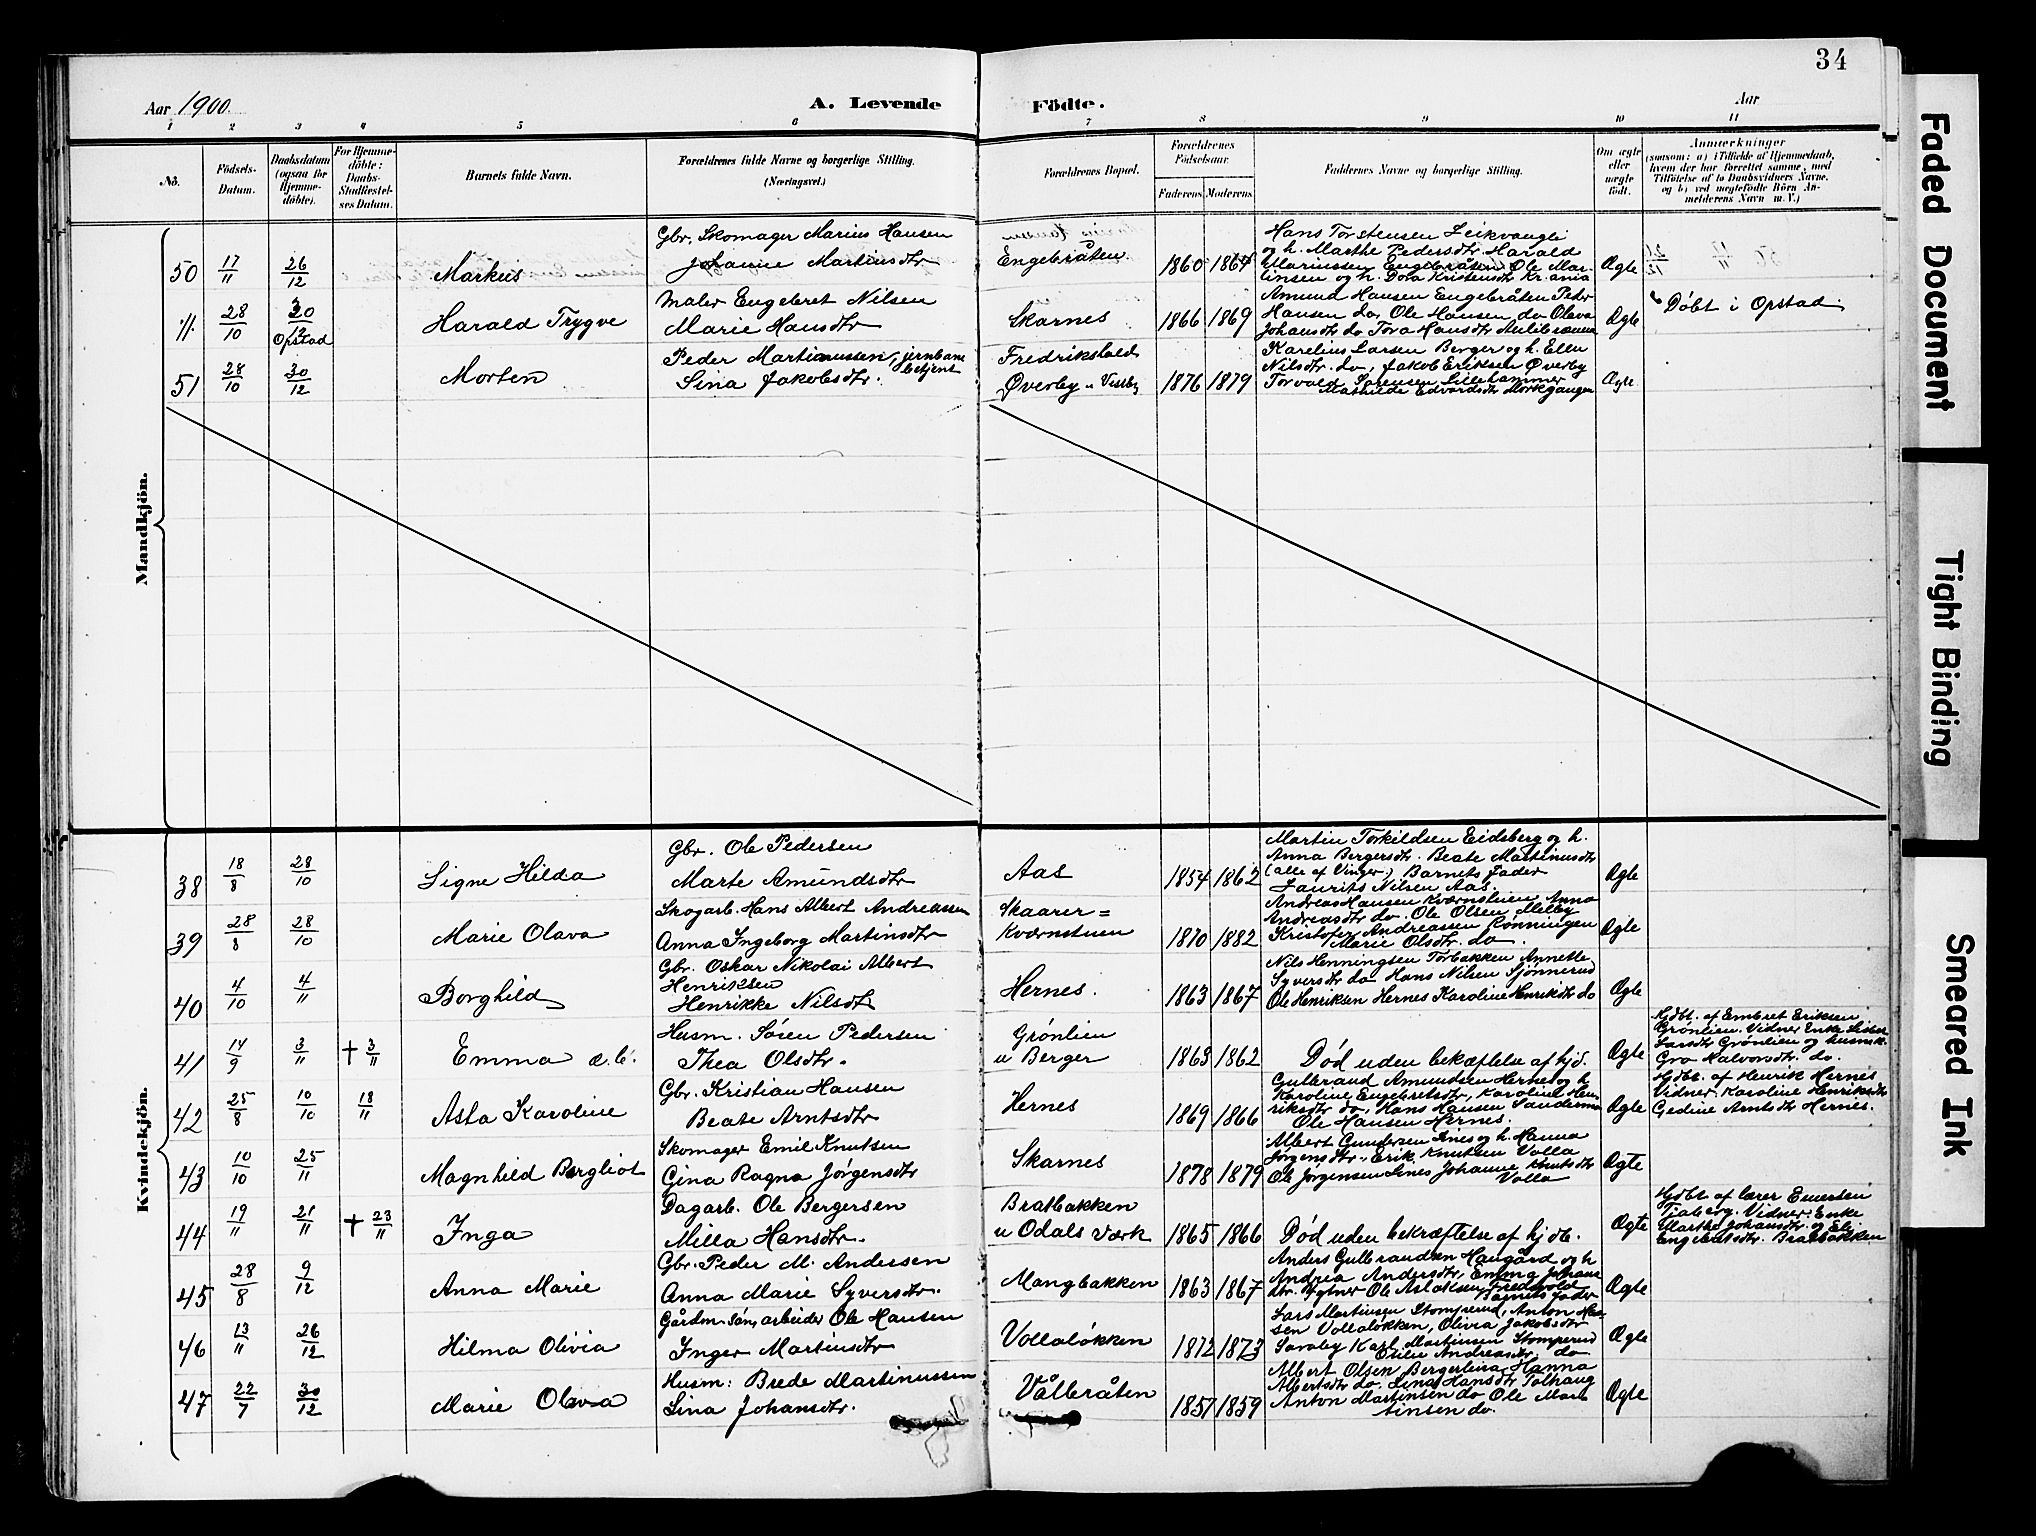 34
Aar 1900.
A. Levende Födte.
Aar
1 2 3 4 5 6 7 8 9 10 11
No.
Födsels-Datum.
Daabsdatum (ogsaa for Hjemme-döbte).
For Hjemme-döbte: Daabs-Stadfæstel-ses Datum.
Barnets fulde Navn.
Forældrenes fulde Navne og borgerlige Stilling. (Næringsvei.)
Forældrenes Bopæl.
Forældrenes Födselsaar.
Faderens Moderens
Faddernes Navne og borgerlige Stilling.
Om ægte eller uægte födt.
Anmærkninger
(saasom: a) i Tilfælde af Hjemmedaab,
hvem der har forrettet samme, med
Tilföielse af to Daabsvidners Navne.
og b) ved uægtefödte Börn An-
melderens Navn m. V.)
Mandkjön.
50 17/11 26/12 Markus
Gbr. Skomager Marius Hansen
Johanne Martinsdtr
Engebråten 1860 1864
Hans Torstensen Leikvangli
og h. Marthe Pedersdtr Harald
Marinssen Engebråten Ole Mar-
tinsen og h. Dora Kristensdtr Kr.ania
Ægte
11. 28/10 30/12 Opstad Harald Trygve
Maler Engebret Nilsen
Marie Hansdtr
Skarnes 1866 1869
Amund Hansen Engebråten Peder
Hansen do, Ole Hansen do Olava
Johansdtr do Tora Hansdtr
Ægte
Döbt i Opstad
51 28/10 30/12 Morten
Peder Martinussen, jernbane
betjent
Sina Jakobsdtr.
Fredrikshald
Øverby u Vestby 1876 1879
Karelius Larsen Berger og h. Ellen
Nilsdtr. do, Jakob Eriksen Øverby
Torvald Sørensen Lillehammer
Mathilde Edvardsdtr Mørkgangen
Ægte
Kvindekjön.
38 18/8 28/10 Signe Hilda
Gbr. Ole Pedersen
Marte Amundsdtr
Aas 1854 1862
Martin Torkildsen Eidsberg og h.
Anna Bergersdtr. Beate Martinusdtr
(alle af Vinger) Barnets fader
Laurits Nilsen Aas.
Ægte
39 28/8 28/10 Marie Olava
Skogarb. Hans Albert Andreassen
Anna Ingeborg Martinsdtr
Skaarer=
Kværnstuen 1870 1882
Andreas Hansen Kværnstuen Anna
Andreasdtr do. Ole Olsen Melby
Kristofer Andreassen Rønningen
Marie Olsdtr. do.
Ægte
40 4/10 4/11 Borghild
Gbr. Oskar Nikolai Albert
Henriksen
Henrikke Nilsdtr
Hernes. 1863 1867
Nils Henningsen Torbakken Annette
Syversdtr do Hans Nilsen Sjønnerud
Ole Henriksen Hernes Karoline Henriksdtr do
Ægte
41 14/9 3/11 † 3/11 Emma
Husm. Sören Pedersen
Thea Olsdtr.
Grönlien
u Berger 1863 1862
Död uden bekæftelse af hjd.
Ægte
Hjdbt. af Embret Eriksen
Grönlien. Vidner Enke
Larsdtr Grönlien og husmk.
Gro Halvorsdtr. do.
42 25/8 10/10 18/11 Asta Karoline
Gbr. Kristian Hansen
Beate Arntsdtr
Hernes 1869 1866
Gulbrand Amundsen Hernes og h
Karoline Engebretsdtr, Karoline Hen
riksdtr do, Hans Hansen
Ole Hansen Hernes.
Ægte
Hjdbt. af Henrik Hernes
Vidner Karoline Henriksdtr
Gedine Arntsdtr Hernes.
43 10/10 25/11 Magnhild Bergliot
Skomager Emil Knutsen
Gina Ragna Jörgensdtr
Skarnes 1878 1879
Albert Gundersen Anes og h. Hanna
Jørgensdtr. Erik Knutsen Volla
Ole Jørgensen Johanne Knutsdtr
Volla
Ægte
44 19/11 21/11 † 23/11 Inga
Dagarb. Ole Bergersen
Milla Hansdtr.
Bratbakken
u Odals Værk 1865 1866
Död uden bekræftelse af hjdb.
Ægte
Hjdbt. af lærer Emersen
Tjaberg. Vidner: Enke
Marthe Johansdtr og Eli
Engebretsdtr. Bratbakken
45 28/8 9/12 Anna Marie
Gbr. Peder M. Andersen
Anna Marie Syversdtr.
Mangbakken 1863 1867
Anders Gulbrandsen Haugård og h
Andrea Andersdtr, Emma Johans
dtr. Ole Fredsvold
Barnets fader
Ægte
46 13/11 26/12 Hilma Olivia
Gårdm. sön, arbeider Ole Hansen
Inger Martinsdtr
Vollaløkken 1872 1873
Lars Martinsen Stomperud, Anton Han
sen Vollaløkken, Olivia Jakobsdtr
Søraby Karl Martinsen Stomperud
Andreasdtr. do
Ægte
47 22/7 30/12 Marie Olava
Husm: Brede Martinussen
Lina Johansdtr.
Vålbråten 1857 1859
Albert Olsen Bergerlina Hanna
Albertsdtr do. Lina Hansdtr Tolhaug
Anton Martinsen do Ole Mart
tinsen do.
Ægte
Faded Document
Tight Binding
Smeared Ink